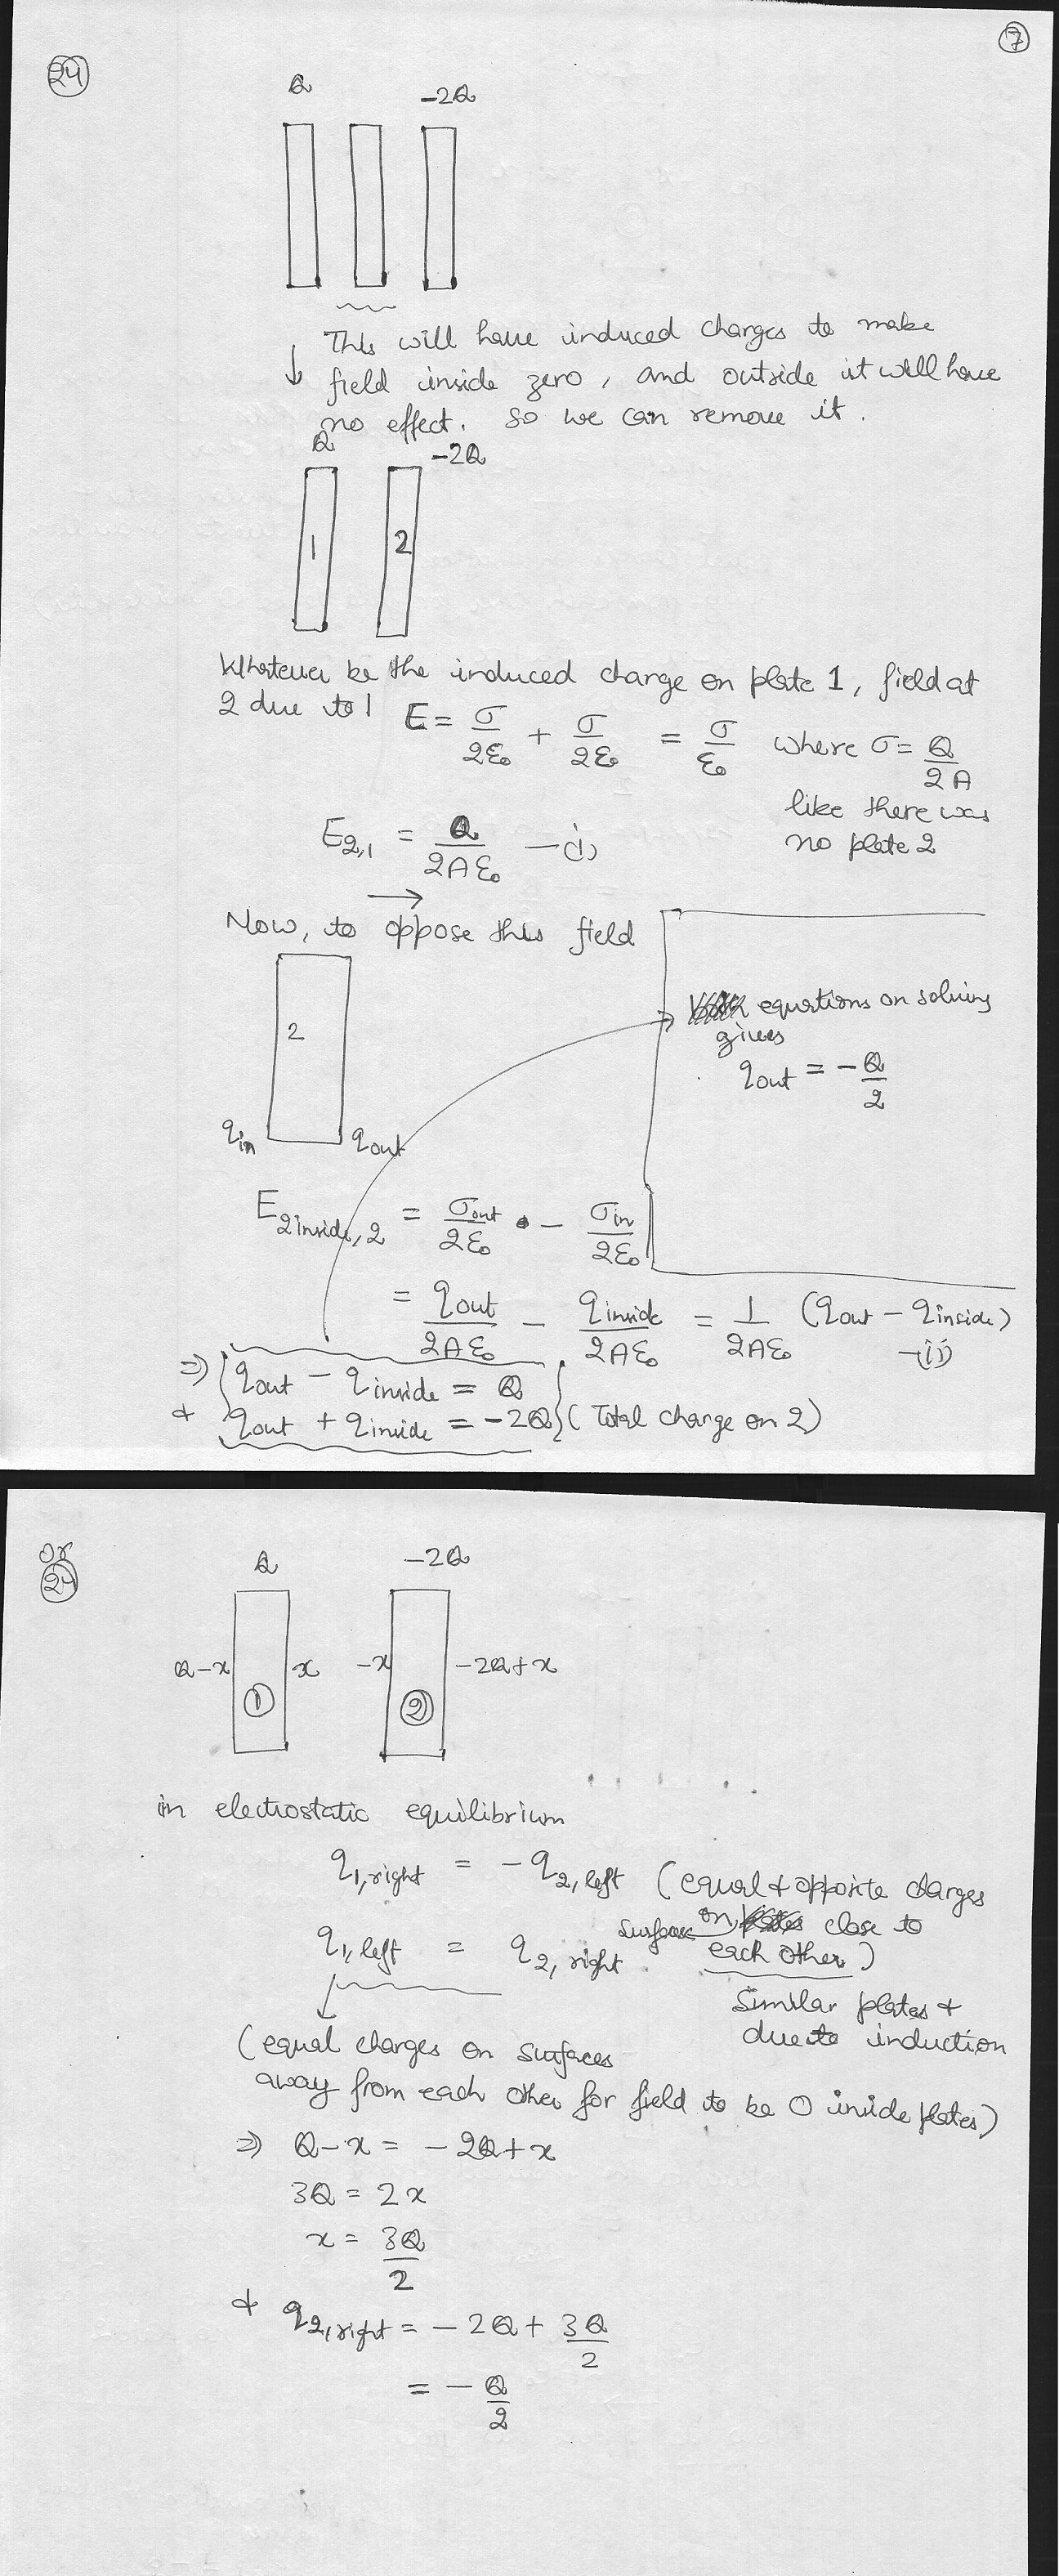 7
24
Q -2Q
This will have induced charges to make
↓ field inside zero, and outside it will have
no effect. So we can remove it.
Q -2Q
1 2
Whatever be the induced charge on plate 1, field at
2 due to 1 E = σ/2ε₀ + σ/2ε₀ = σ/ε₀ where σ = Q/2A
like there was
no plate 2
E₂,₁ = Q/2Aε₀ —(i)
→
Now, to oppose this field
2
q_in q_out
equations on solving
gives
q_out = -Q/2
E_2inside,2 = σ_out/2ε₀ - σ_in/2ε₀
= q_out/2Aε₀ - q_inside/2Aε₀ = 1/2Aε₀ (q_out - q_inside)
—(ii)
⇒ q_out - q_inside = Q
& q_out + q_inside = -2Q (Total charge on 2)
or
24
Q -2Q
Q-x x -x -2Q+x
1 2
in electrostatic equilibrium
q_1,right = -q_2,left (equal & opposite charges
on surfaces close to
each other)
q_1,left = q_2,right
Similar plates &
due to induction
(equal charges on surfaces
away from each other for field to be 0 inside plates)
⇒ Q-x = -2Q+x
3Q = 2x
x = 3Q/2
& q_2,right = -2Q + 3Q/2
= -Q/2